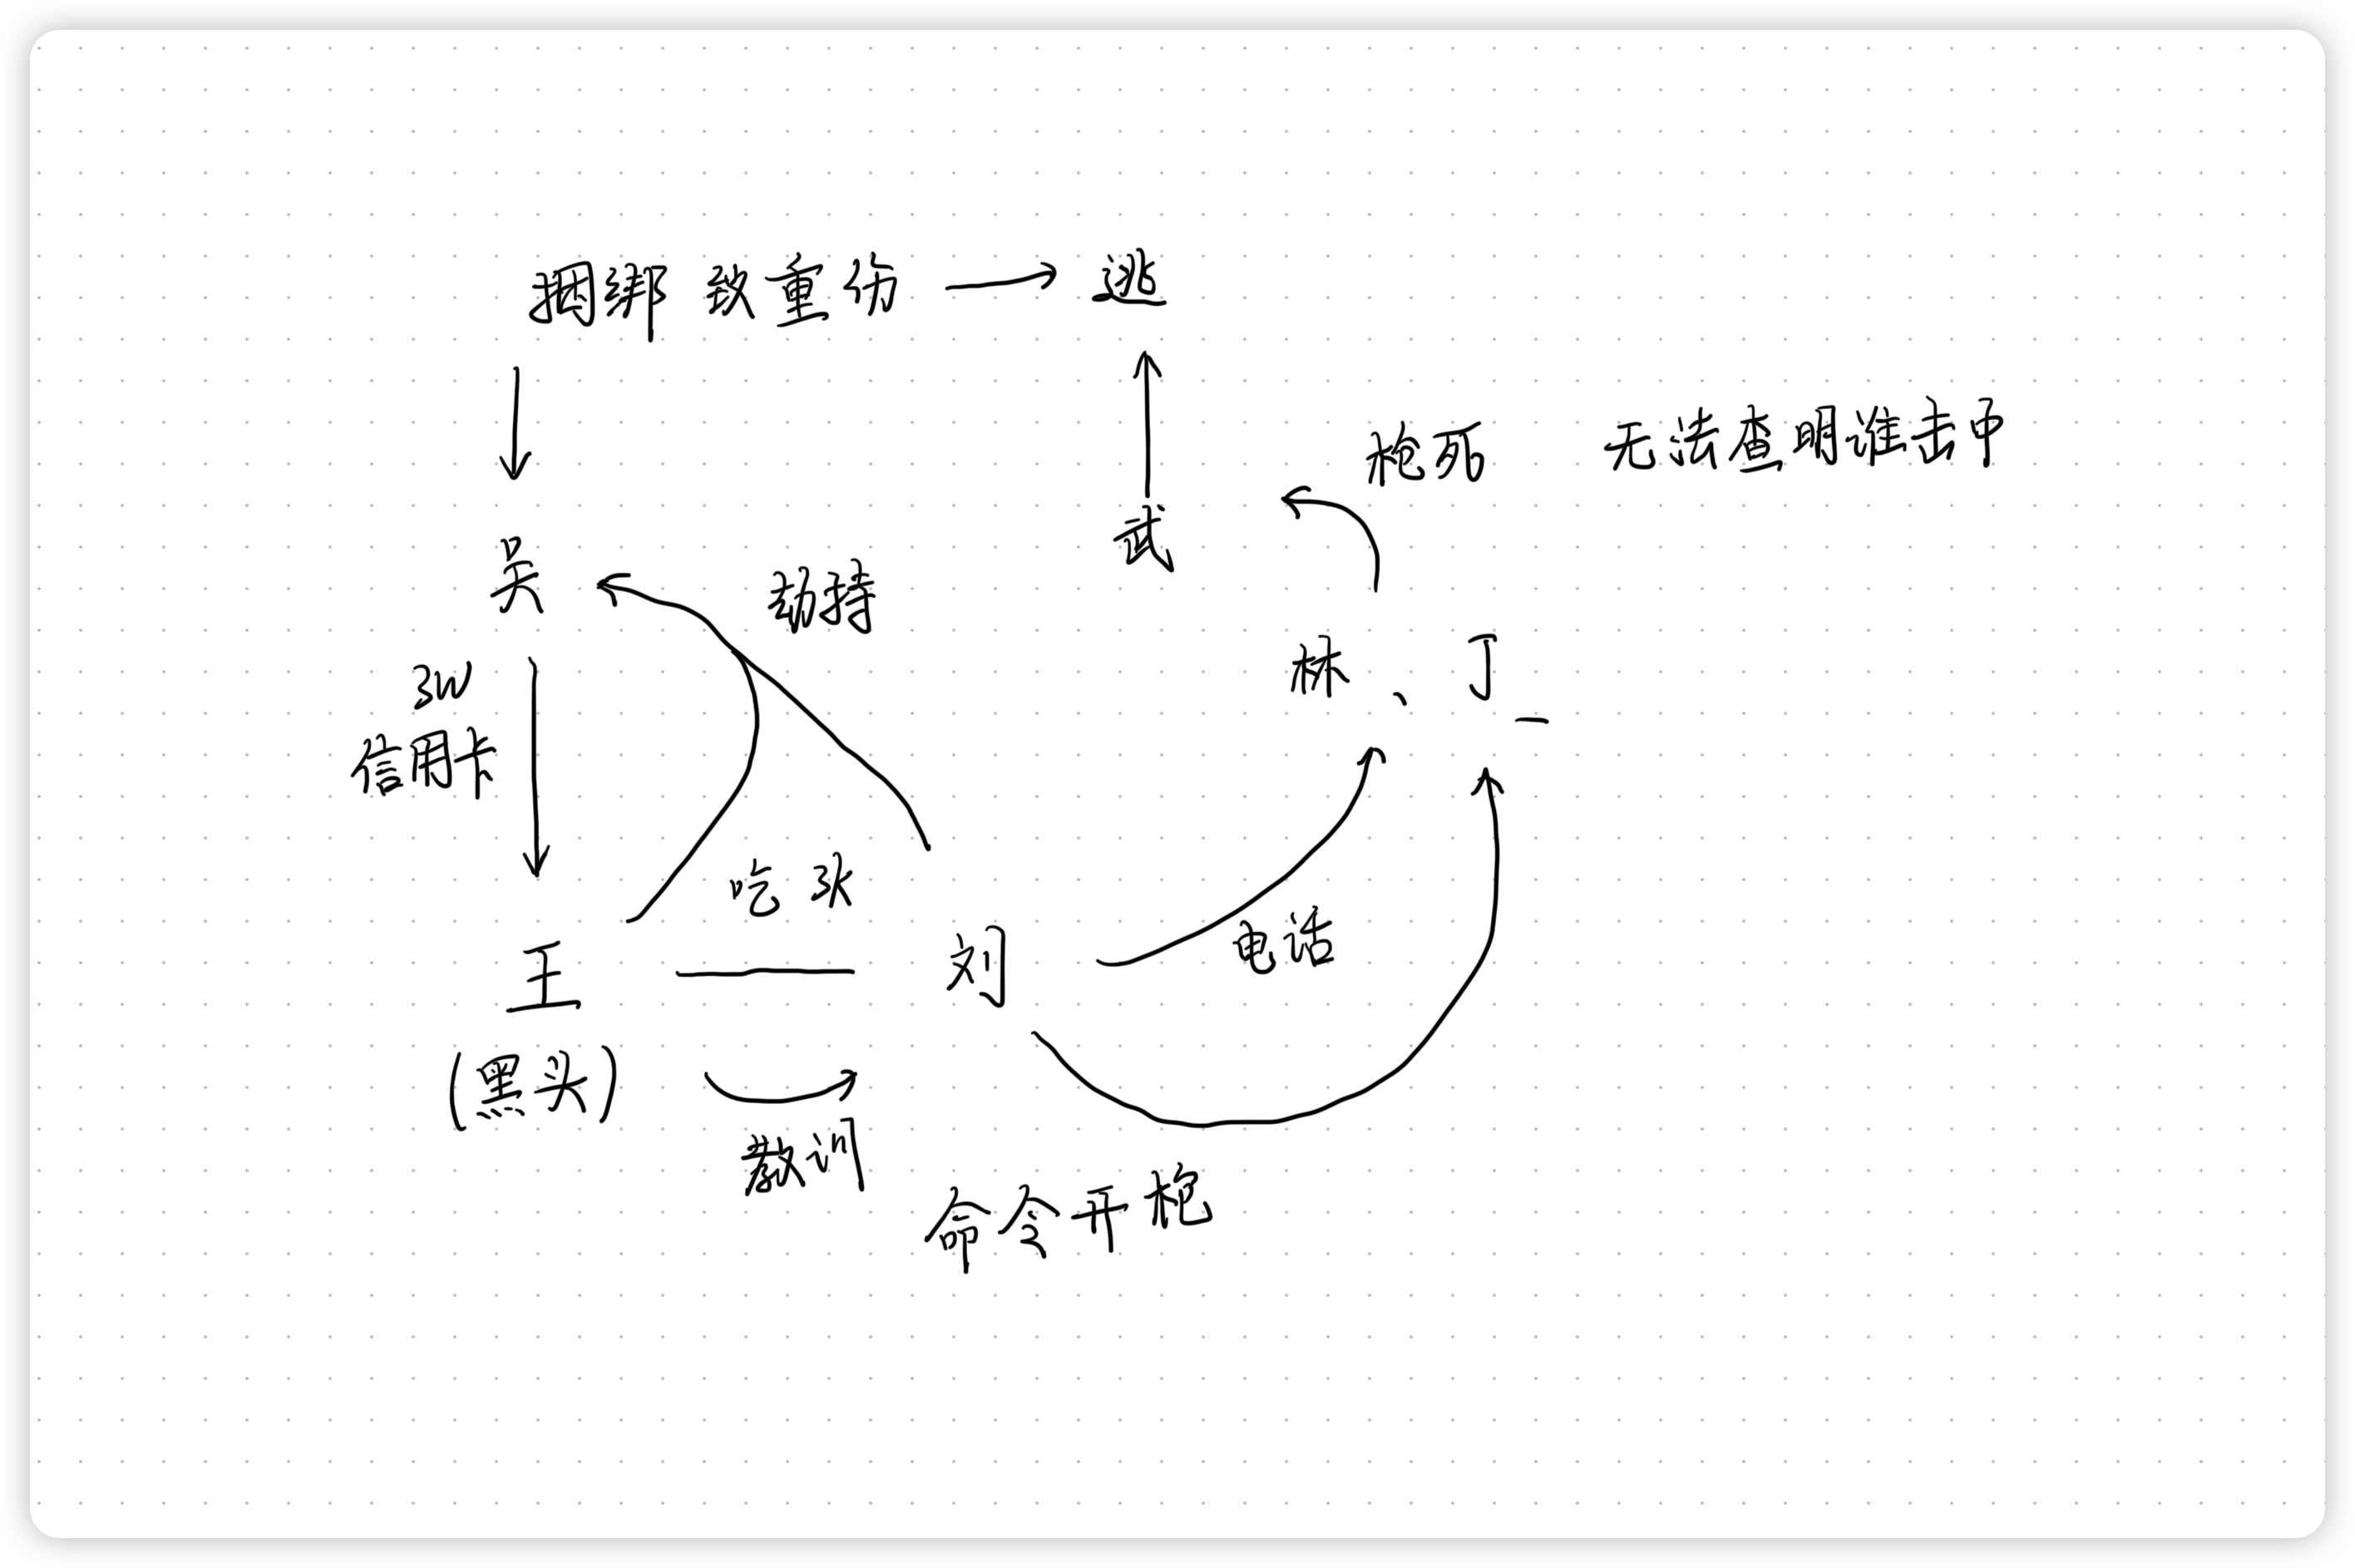 捆绑 致重伤 → 逃
枪死 无法查明谁击中
武
吴
劫持
林、丁
3W
信用卡
吃 3K
王
刘
电话
(黑头)
教训
命令开枪